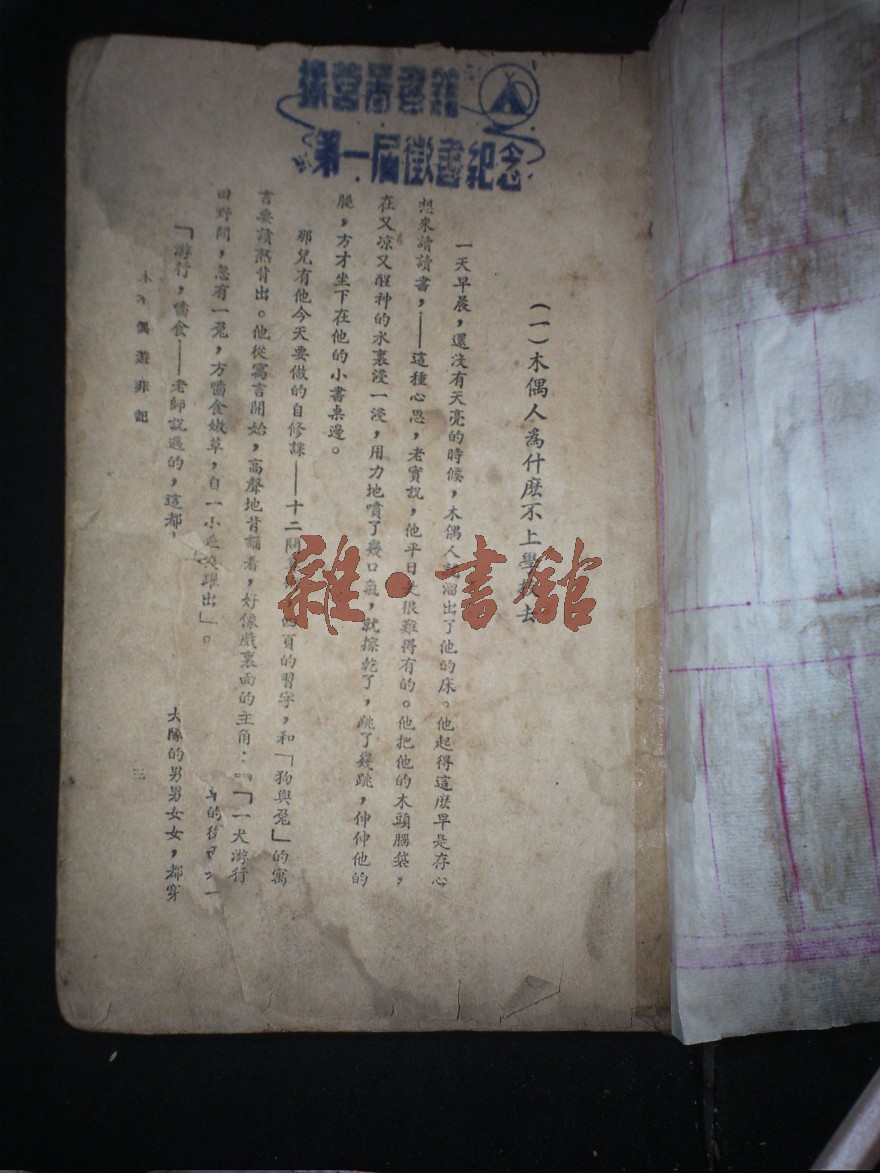 營圖書館
第一屆徵書紀念
（一）木偶人爲什麽不上學校去
一天早晨，還没有天亮的時候，木偶人就溜出了他的床。他起得這麽早是存心
想來讀讀書，——這種心思，老實說，他平日是很難得有的。他把他的木頭腦袋，
在又凉又醒神的水裏浸一浸，用力地噴了幾口氣，就擦乾了，跳了幾跳，伸伸他的
腿，方才坐下在他的小書桌邊。
那兒有他今天要做的自修課——十二問 四頁的習字，和「狗與兔」的寓
言要讀熟背出。他從寓言開始，高聲地背誦着，好像戲裏面的主角：「一犬游行
田野間，忽有一兔，方嚙食嫩草，自一小 躍出」。 的 一
「游行，嚙食——老師説過的，這都 大隊的男男女女，都穿
木偶遊菲記
三
雜·書館